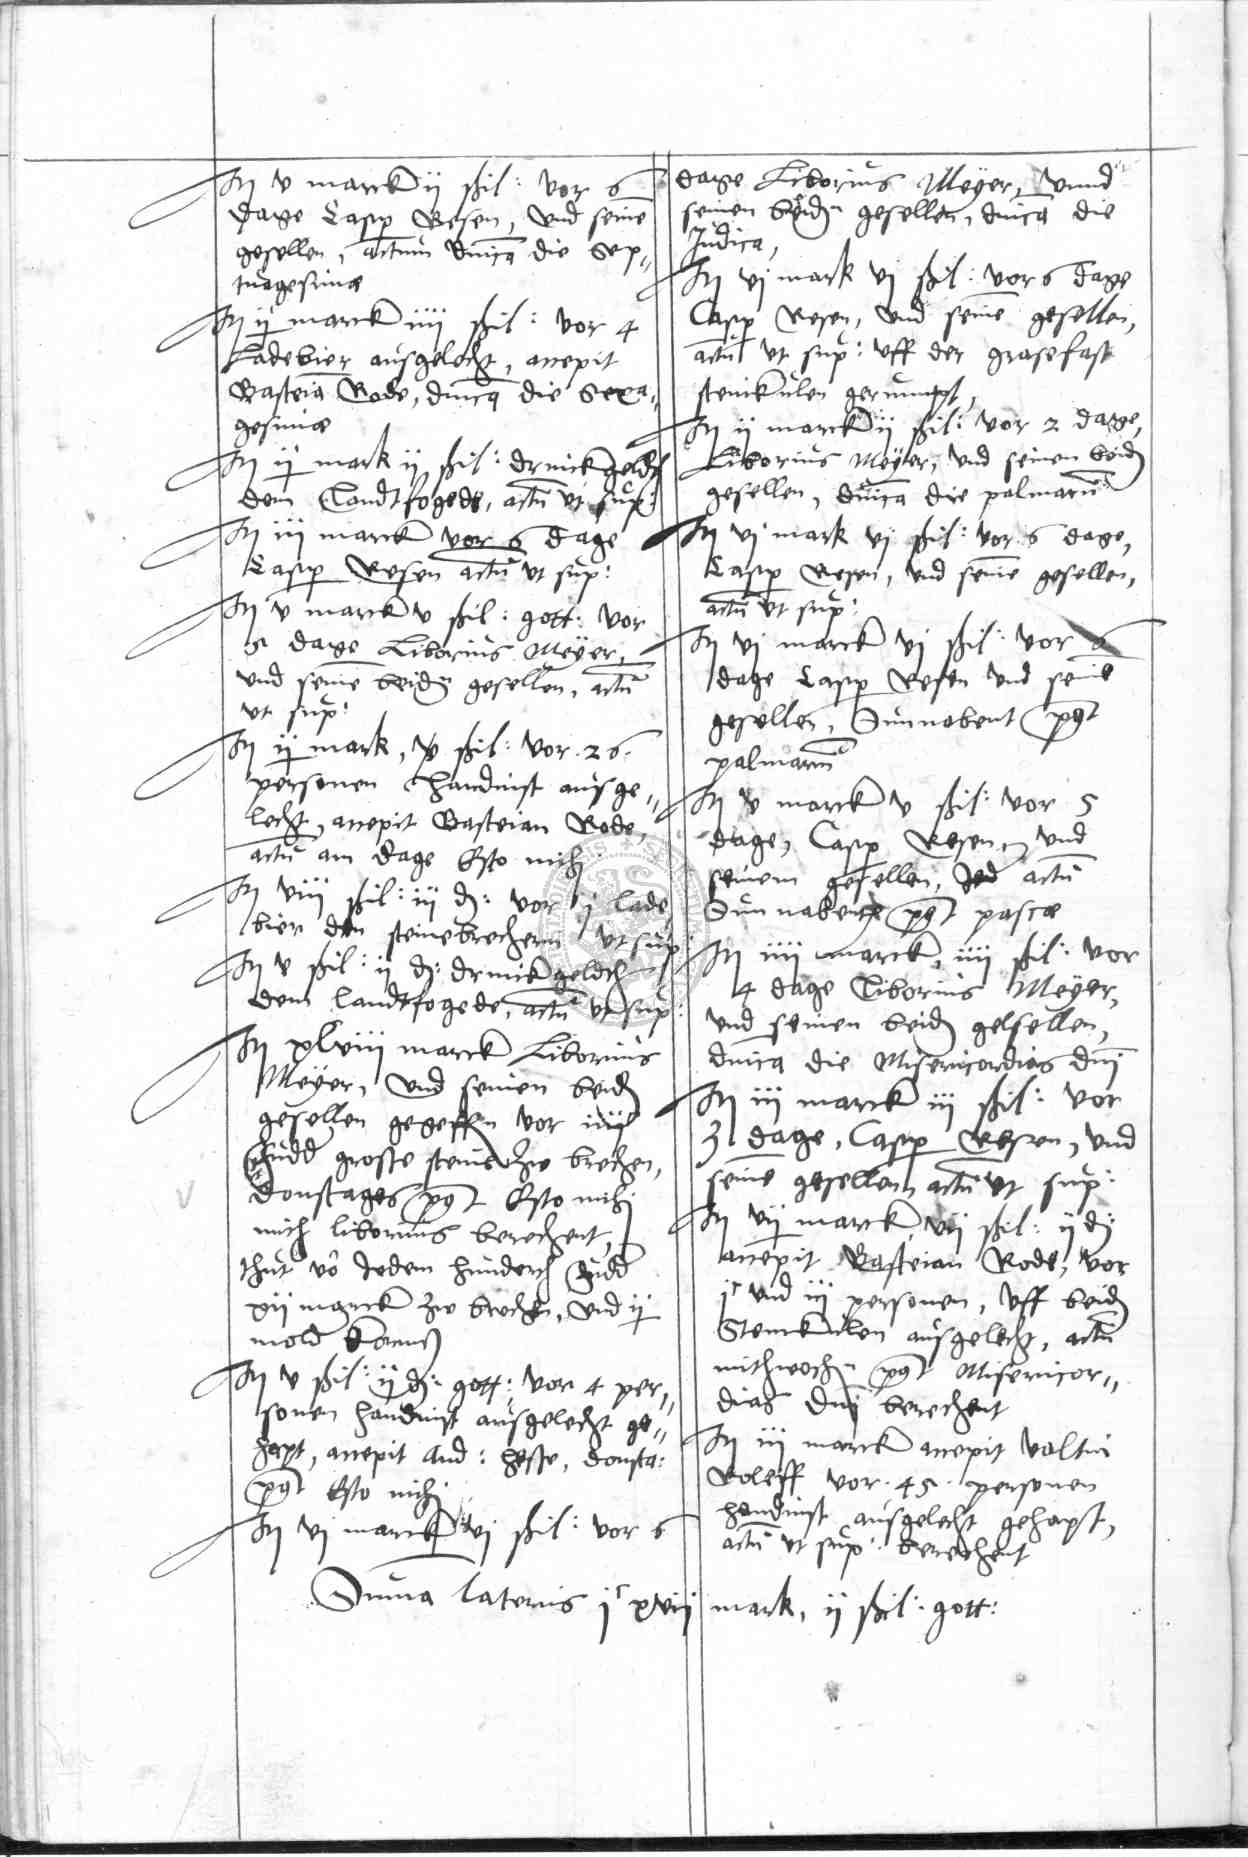 It v marck ij ßil: vor 6
dage Casp Resen, vnd seine
gesellen, actum dnica die Sep„
tuagesima
It ij marck iiii ßil: vor 4
Ladebier ausgelecht, accepit
Basteia Rode, dnica die Sexa„
gesima
It ij mark ij ßil: drinckgeldt
dem Landtfogede, actu vt sup:
It iii marck vor 6 dage
Casp Resen actu vt sup:
It v marck v ßil: gott: vor
5 dage Liborius Meÿer,
vnd seine beidn gesellen, actu
vt sup:
It ij mark, ßil: vor . 26 .
personen handinst ausge„
lecht, accepit Basteian Rode,
actu am dage Esto mihi
It viii ßil: iij d: vor lade
bier den steinebrechern vt sup:
It v ßil: ij d: drinckgeldt
dem landtfogede, actu vt sup:
It xlviii marck Liborius
Meÿer, vnd seinen beidn
gesellen gegeffen vor
fudd groste steine zw brechen,
donstages pt Esto mihi
mith liborius berechent,
thut vo Jedem hundert fudd
xii marck zw brechen, vnd ij
mold korns
It v ßil: ij d: gott: vor 4 per„
sonen handinst ausgelecht ge„
hapt, accepit And: Hesse, donsta:
pt Esto mihi
It vi marck vi ßil: vor 6
dage Liborius Meÿer, vnnd
seinen beidn gesellen, dnica die
Judica,
It vj mark vj ßil: vor 6 dage
Casp Resen, vnd seine gesellen,
actu vt sup: vff der grasefast
steinkulen gerumpt,
It ij marck ij ßil: vor 2 dage,
Liborius Meÿer, vnd seinen beidn
gesellen, dnica die palmaru
It vj mark vj ßil: vor 6 dage,
Casp Resen, vnd seine gesellen,
actu vt sup:
It vj marck vj ßil: vor 6
dage Casp Resen vnd seine
gesellen, Sunnabent pt
palmarum
It v marck v ßil: vor 5
dage, Casp Resen, vnd
seinem gesellen, actu
Sunnabent pt pasce
It iiii marck, iiii ßil: vor
4 dage Liborius Meÿer,
vnd seinen beidn gelsellen,
dnica die Misericordias dni
It iii marck iii ßil: vor
3 dage, Casp Resen, vnd
seine gesellen actu vt sup:
It vij marck, vij ßil: ij d:
accepit Basteian Rode, vor
jc vnd iii personen, vff beidn
Steinkulen ausgelecht, actu
mithwochn pt Misericor„
dias dni berechent
It iii marck accepit valtin
Roleff vor . 45 . personen
handinst ausgelecht gehapt,
actu vt sup: berechent
Suma lateris jc xviij mark, ij ßil: gott: